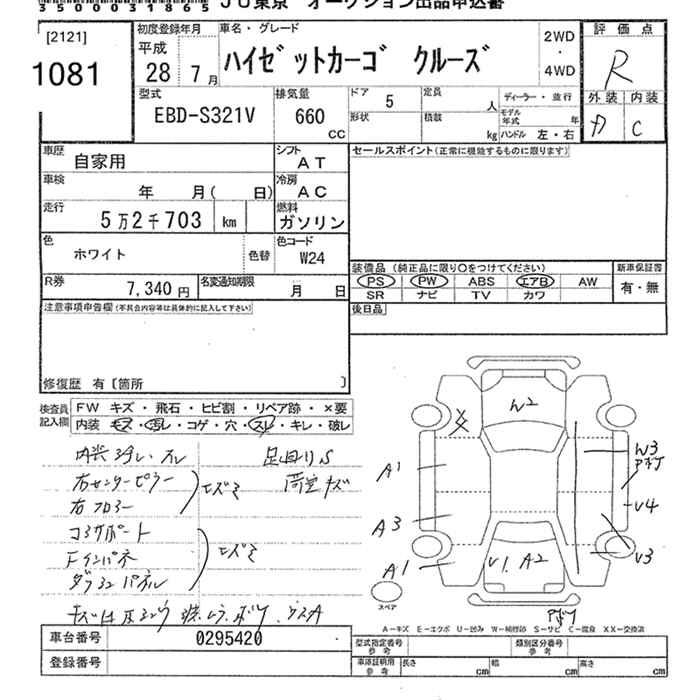 350003318​65
JU東京 オークション出品申込書
[2121]
1081
初度登録年月
平成
28 年 7 月
車名・グレード
ハイゼットカーゴ クルーズ
2WD
・
4WD
評価点
R
外装 内装
C
型式
EBD-S321V
排気量
660
CC
ドア 5
形状
定員 人
積載 kg
ディーラー・並行
モデル年式 年
ハンドル 左・右
車歴
自家用
シフト
AT
車検
年 月( 日)
冷房
AC
走行
5万2千703 km
燃料
ガソリン
色
ホワイト
色替
色コード
W24
R券
7,340 円
名変通知期限
月 日
セールスポイント(正常に機能するものに限ります)
装備品(純正品に限り○をつけてください)
PS PW ABS エアB AW
SR ナビ TV カワ
新車保証書
有・無
後日品
注意事項申告欄(不具合内容等は具体的に記入して下さい)
修復歴 有〔箇所 〕
検査員
記入欄
FW キズ・飛石・ヒビ割・リペア跡・×要
内装 キズ・汚レ・コゲ・穴・スレ・キレ・破レ
足回りS
荷室キズ
右センターピラー
右フロアー
ヒズミ
コアサポート
Fインパネ
ヒズミ
W2
A1
A3
A1
V1 A2
W3
V4
V3
スペア
A-キズ E-エクボ U-凹み W-補修跡 S-サビ C-腐食 XX-交換済
車台番号 0295420
登録番号
型式指定番号
参考
類別区分番号
参考
車庫証明用
参考
長さ cm
幅 cm
高さ cm